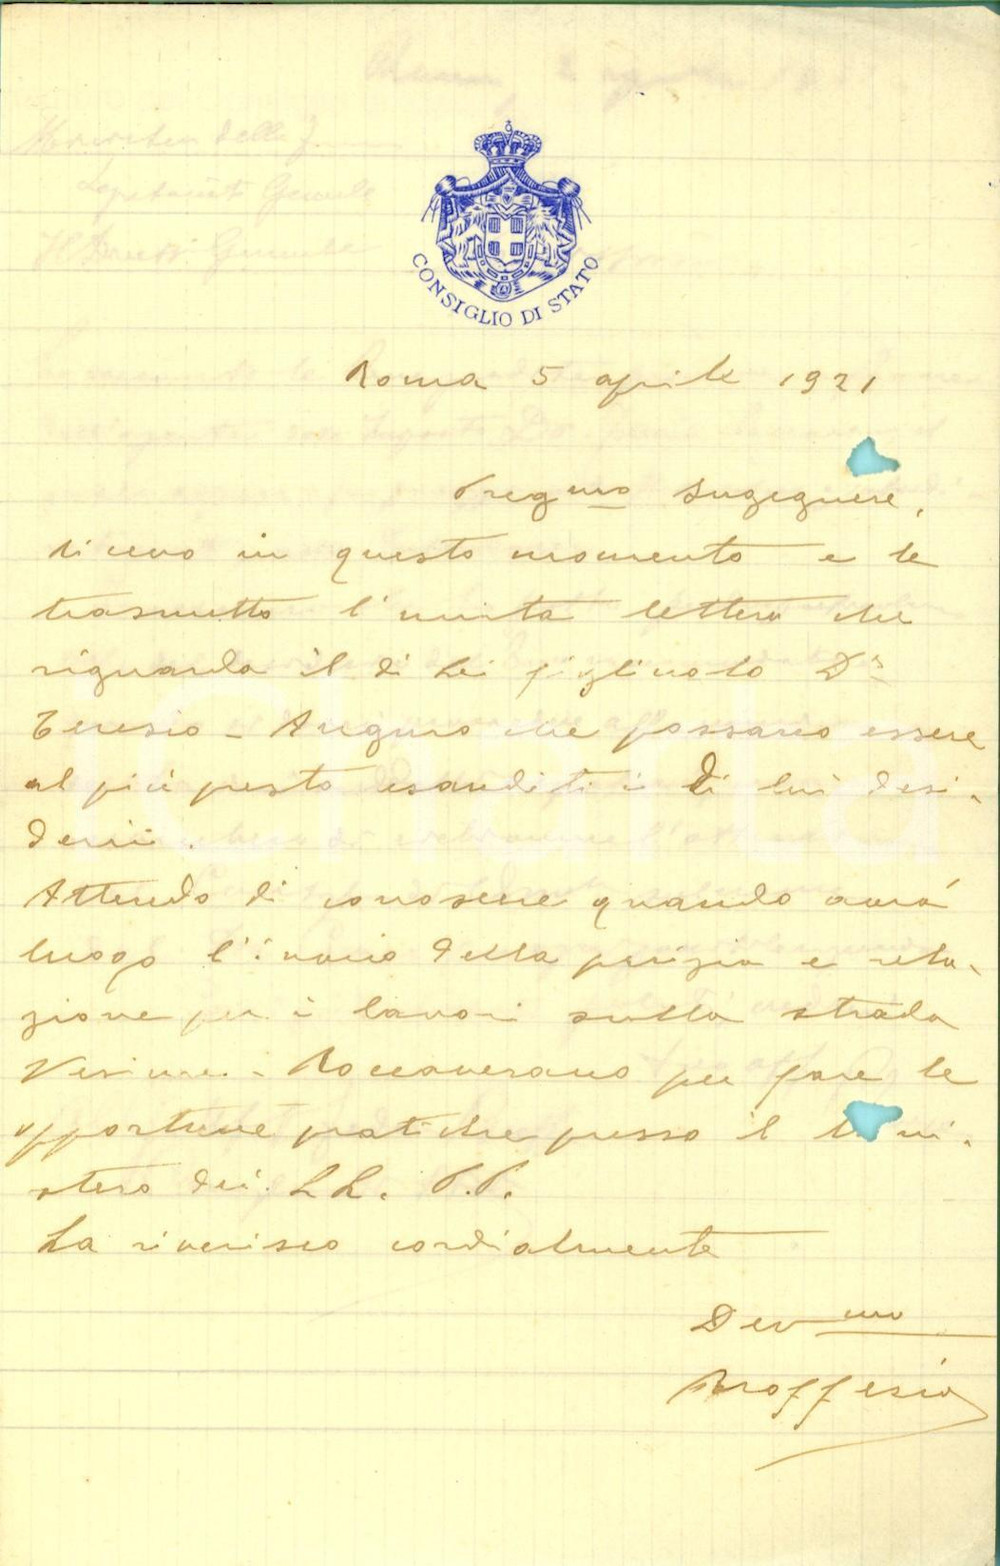 CONSIGLIO DI STATO
Roma 5 aprile 1921
Pregmo Ingegnere,
ricevo in questo momento e le
trasmetto l'unita lettera che
riguarda il di Lei figliuolo Dr
Teresio - Auguro che possano essere
al più presto esauditi i di lui desi-
derii.
Attendo di conoscere quando avrá
luogo l'invio della perizia e rela-
zione per i lavori sulla strada
Vesime - Roccaverano per fare le
opportune pratiche presso il Mini-
stero dei LL. P.P.
La riverisco cordialmente
Devmo